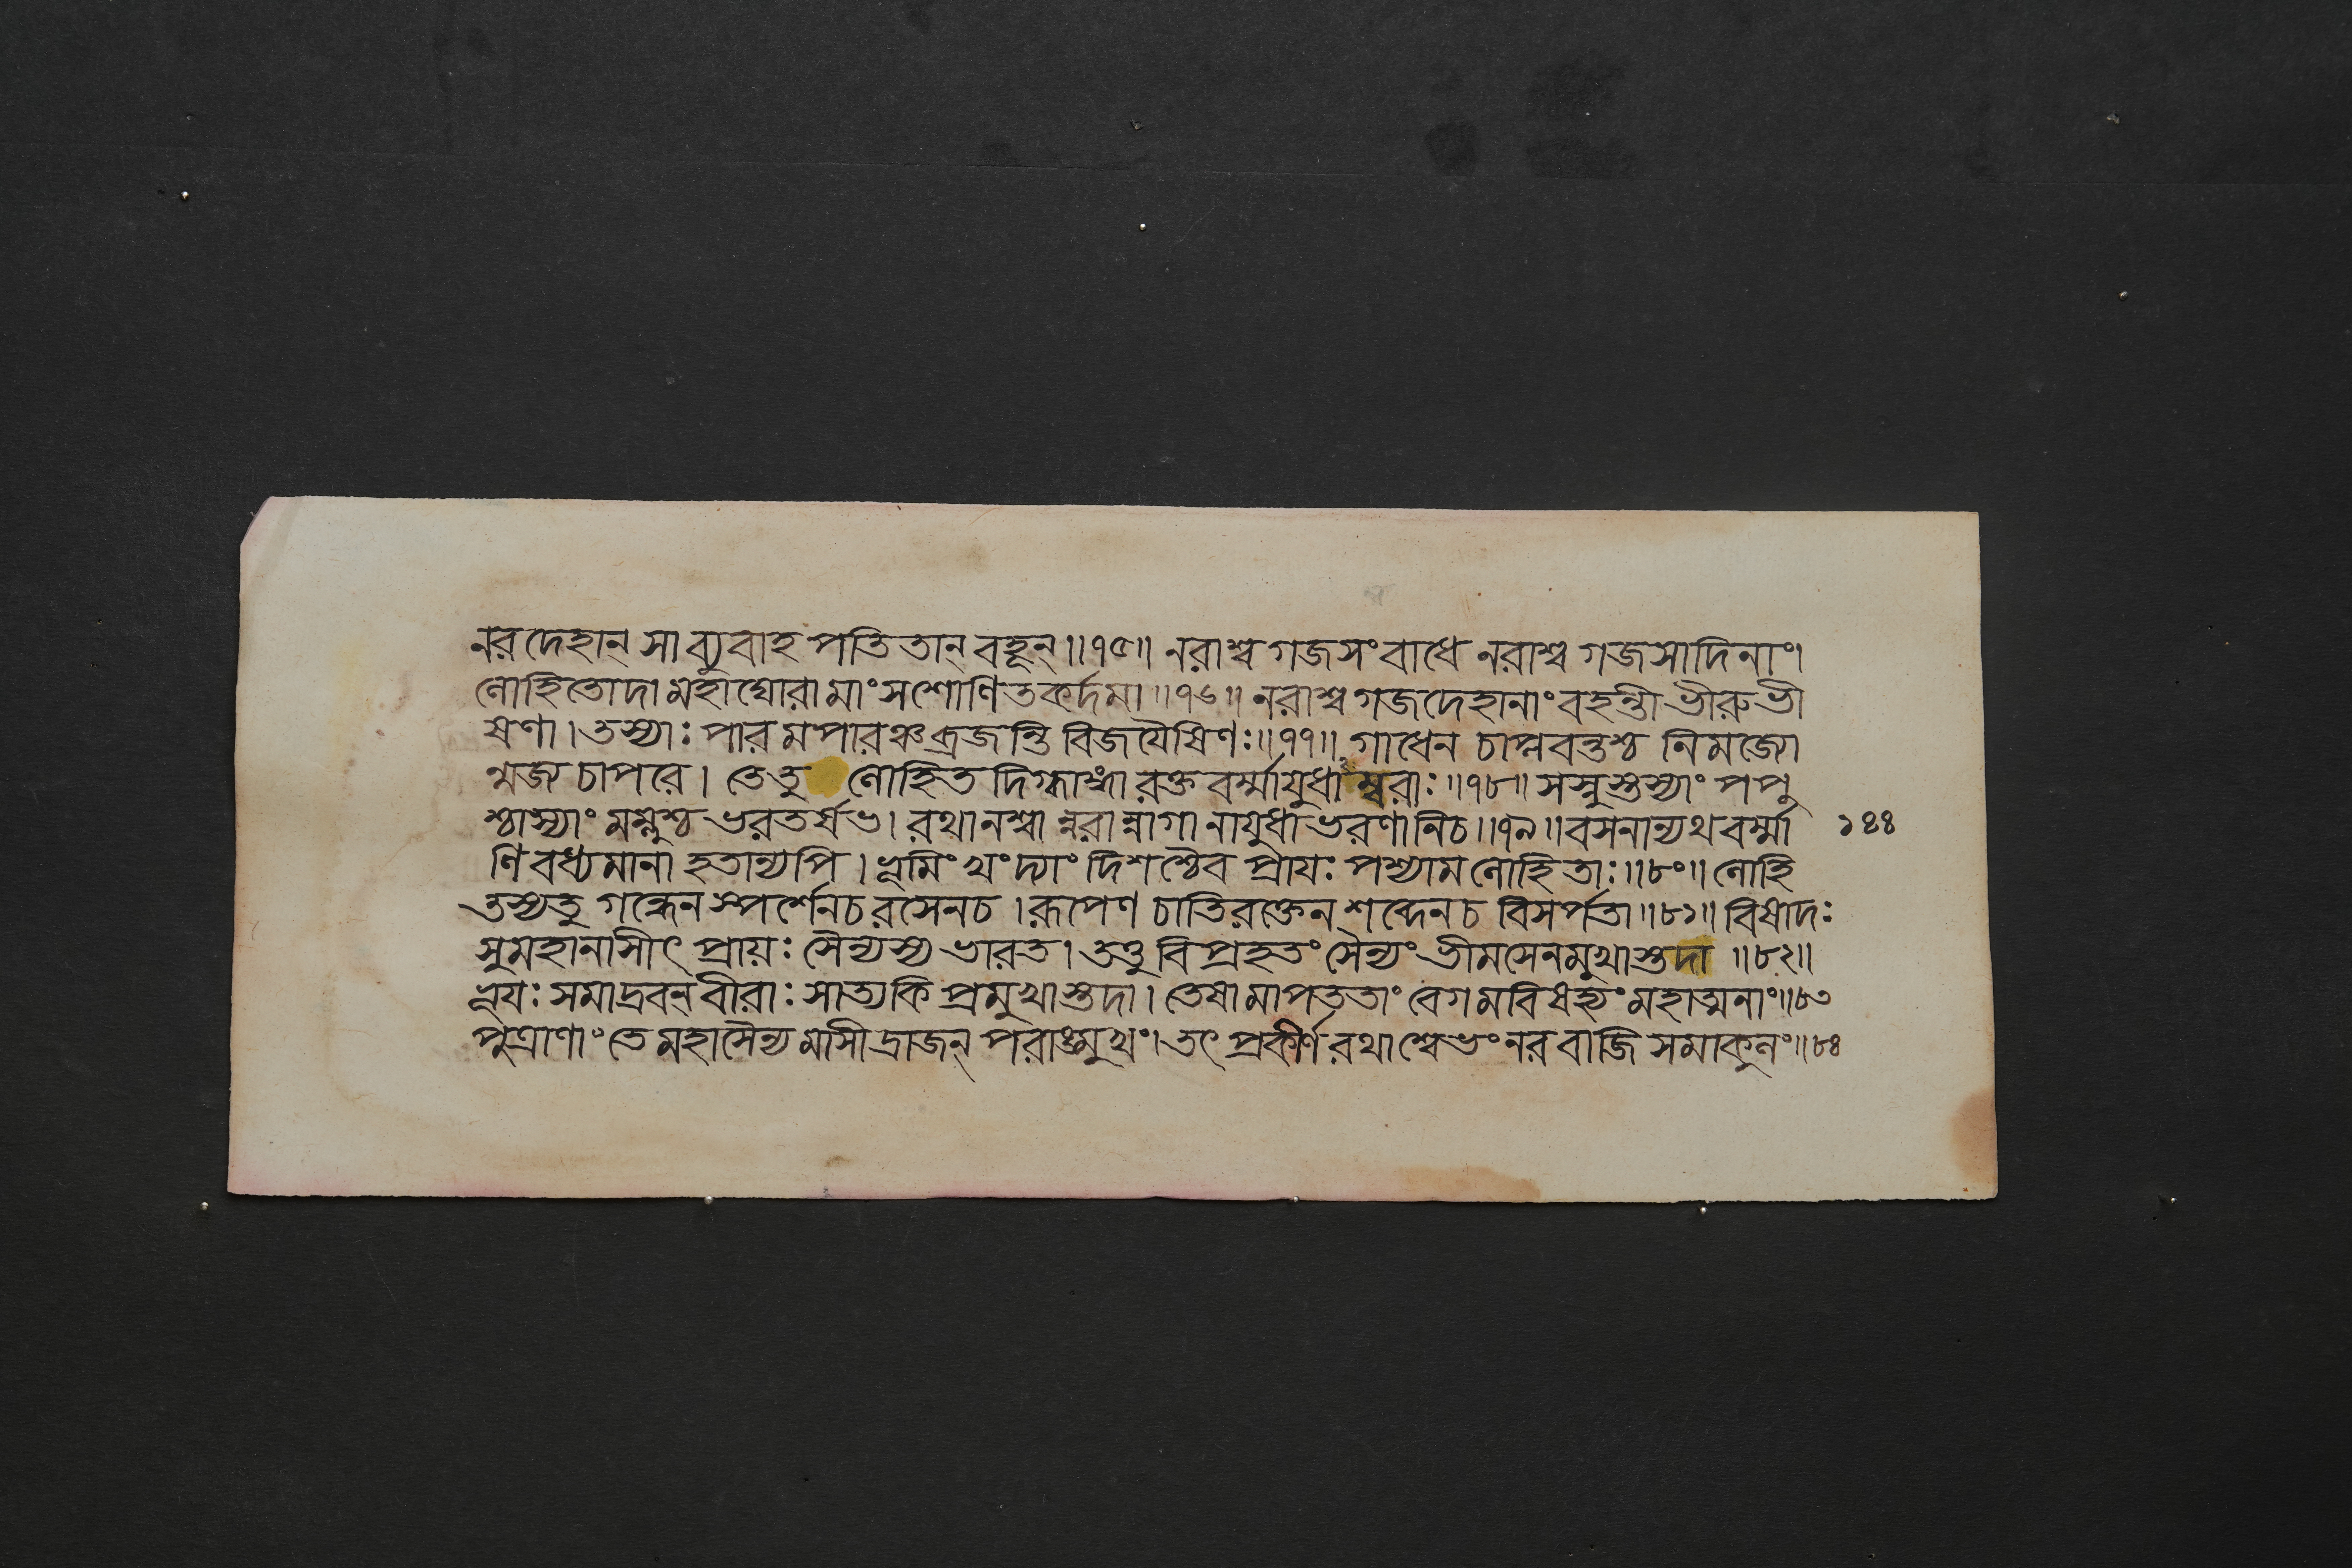 নরদেহান্ সা ব্যুবাহ পতিতান্ বহূন্॥৭৫॥ নরাশ্ব গজসংবাধে নরাশ্ব গজসাদিনাং।
লোহিতোদা মহাঘোরা মাংসশোণিতকর্দমা॥৭৬॥ নরাশ্ব গজদেহানাং বহন্তী ভীরুভী
ষণা। তস্যাঃ পারমপারঞ্চ ব্রজন্তি বিজয়ৈষিণঃ॥৭৭॥ গাধেন চাপ্লবন্তশ্চ নিমজ্জ্যো
ন্মজ্জ্য চাপরে। তেতু লোহিত দিগ্ধাঙ্গা রক্ত বর্ম্মায়ুধাম্বরাঃ॥৭৮॥ সস্নুস্তস্যাং পপু
শ্চাস্যাং মম্লুশ্চ ভরতর্ষভ। রথানশ্বা ন্নরা ন্নাগা নায়ুধাভরণানিচ॥৭৯॥ বসনান্যথ বর্ম্মা
১৪৪
ণি বধ্যমানা হতান্যপি। ভূমিং খং দ্যাং দিশশ্চৈব প্রায়ঃ পশ্যাম লোহিতাঃ॥৮০॥ লোহি
তস্যতু গন্ধেন স্পর্শেনচ রসেনচ। রূপেণ চাতিরক্তেন শব্দেনচ বিসর্পতা॥৮১॥ বিষাদঃ
সুমহানাসীৎ প্রায়ঃ সৈন্যস্য ভারত। তত্তু বিপ্রহতং সৈন্যং ভীমসেনমুখাস্তদা॥৮২॥
ভূয়ঃ সমাদ্রবন্ বীরাঃ সাত্যকি প্রমুখাস্তদা। তেষামাপততাং বেগমবিষহ্যং মহাত্মনাং॥৮৩
পুত্রাণাং তে মহাসৈন্য মাসীদ্রাজন্ পরাঙ্মুখং। তৎ প্রকীর্ণ রথাশ্বেভং নর বাজি সমাকুলং॥৮৪